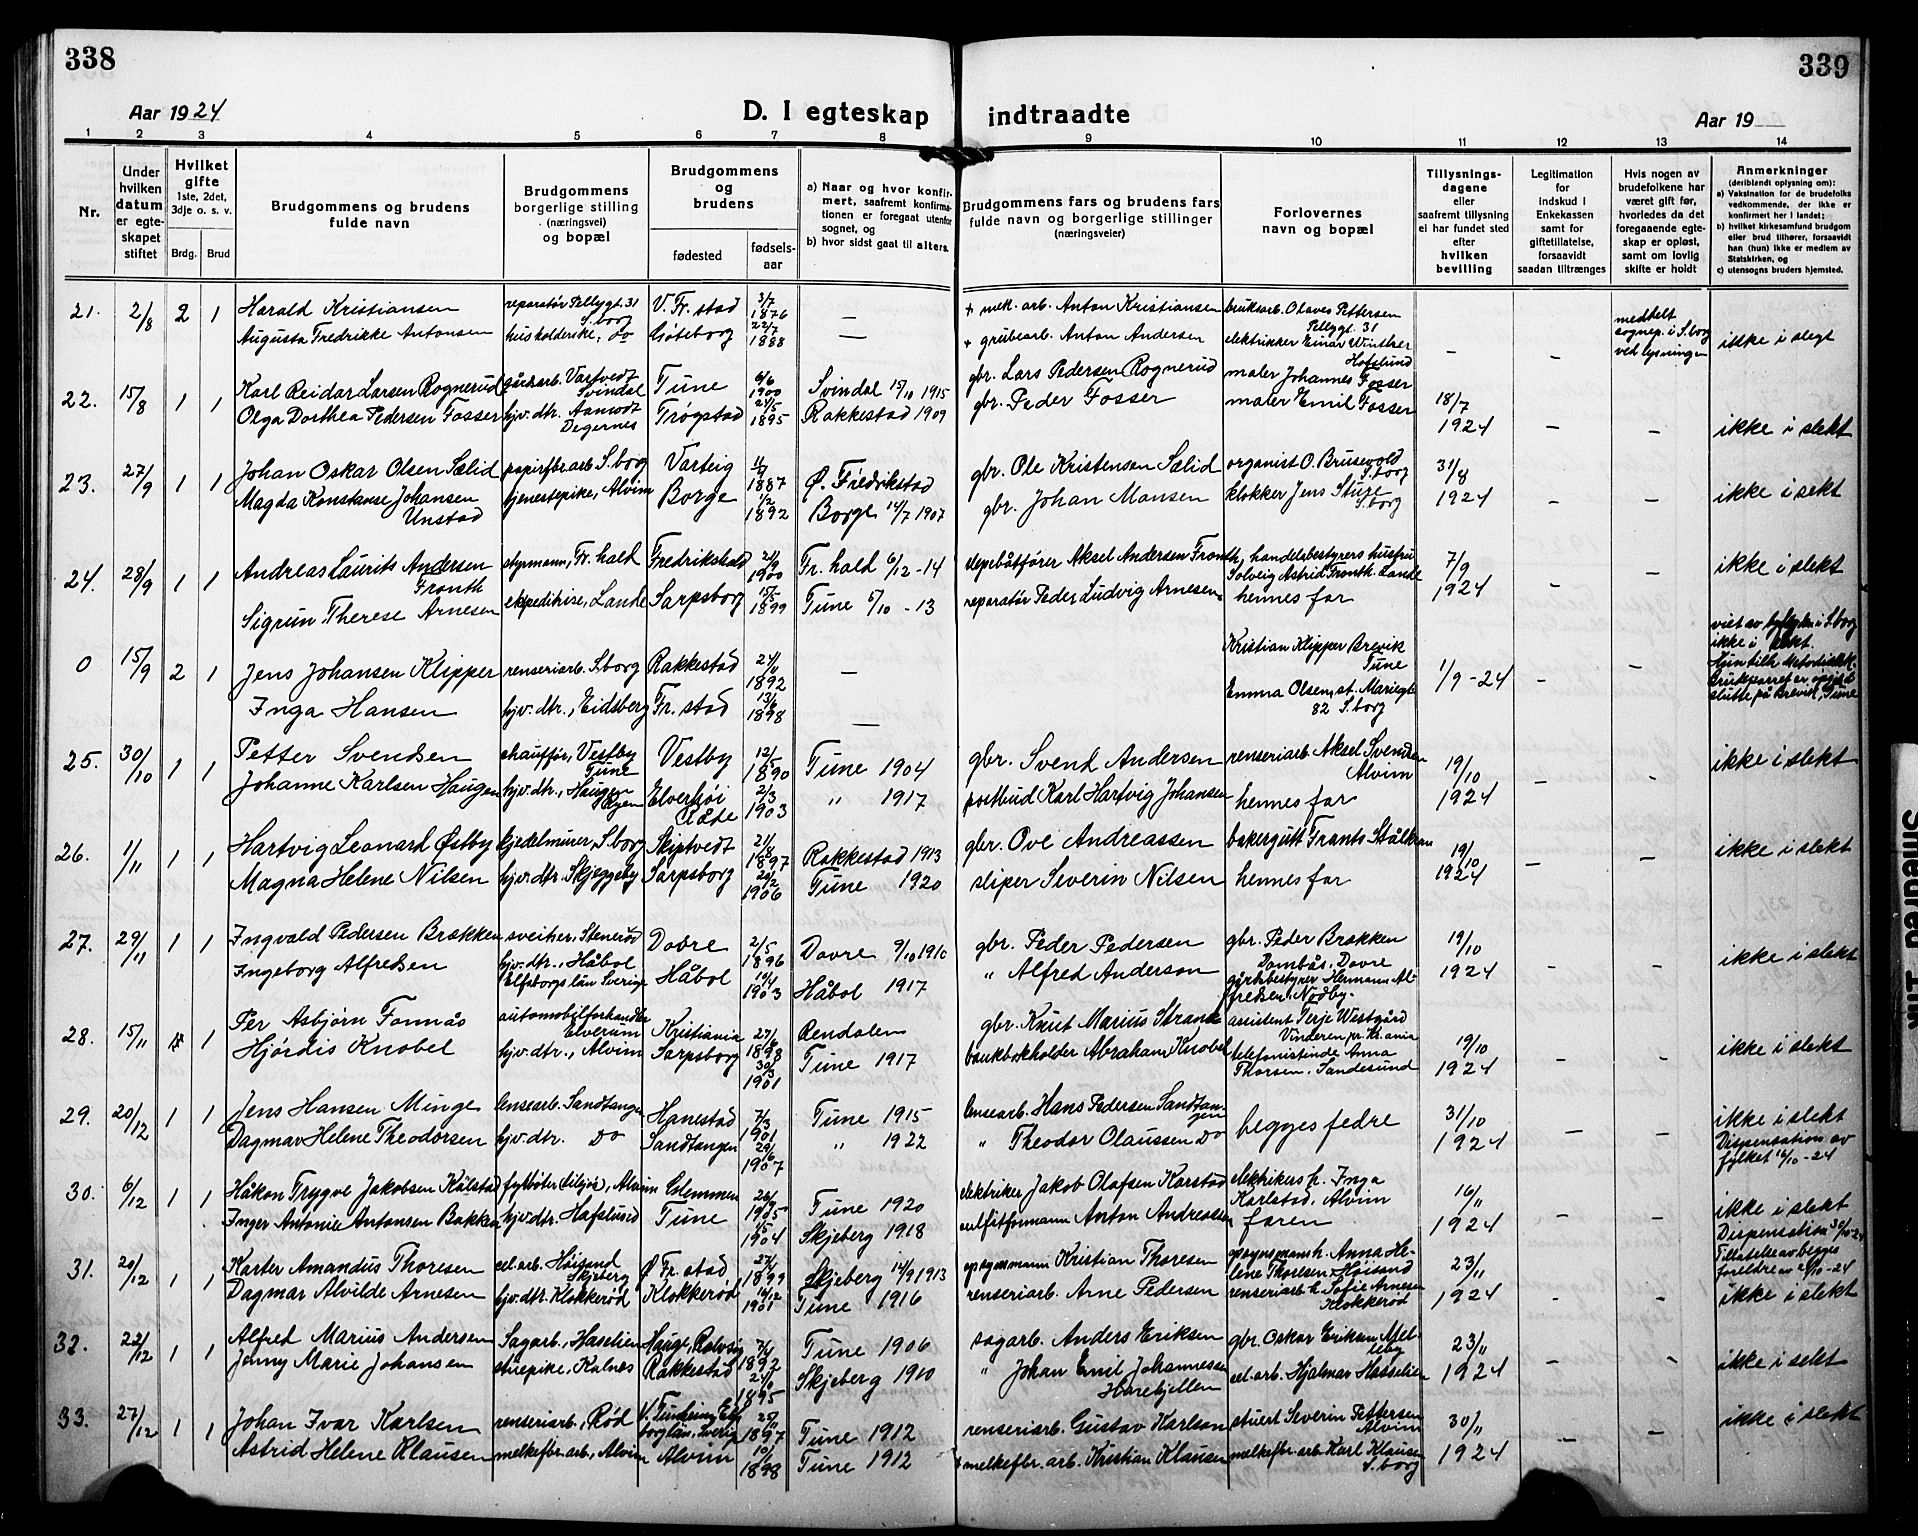 338
339
Aar 1924
D. I egteskap indtraadte
Aar 19
1 2 3 4 5 6 7 8 9 10 11 12 13 14
Nr.
Under hvilken datum er egteskapet stiftet
Hvilket gifte 1ste, 2det, 3dje o. s. v.
Brdg. Brud
Brudgommens og brudens fulde navn
Brudgommens borgerlige stilling (næringsvei) og bopæl
Brudgommens og brudens
fødested
fødselsaar
a) Naar og hvor konfirmert, saafremt konfirmationen er foregaat utenfor sognet, og
b) hvor sidst gaat til alters.
Brudgommens fars og brudens fars fulde navn og borgerlige stillinger (næringsveier)
Forlovernes navn og bopæl
Tillysningsdagene eller saafremt tillysning ei har fundet sted efter hvilken bevilling
Legitimation for indskud i Enkekassen samt for giftetillatelse, forsaavidt saadan tiltrænges
Hvis nogen av brudefolkene har været gift før, hvorledes da det foregaaende egteskap er opløst, samt om lovlig skifte er holdt
Anmerkninger (deriblandt oplysning om):
a) Vaksination for de brudefolks vedkommende, der ikke er konfirmert her i landet;
b) hvilket kirkesamfund brudgom eller brud tilhører, forsaavidt han (hun) ikke er medlem av Statskirken, og
c) utensogns bruders hjemsted.
21. 2/8 2 1 Harald Kristiansen reparatør Pellygt. 31 S.borg V. Fr. stad 3/7 1876 — + mek. arb. Anton Kristiansen bruksarb. Olaves Pettersen Pellygt. 31 — — meddelt sognep. i S.borg ved lysningen ikke i slegt
Augusta Fredrikke Antonsen husholderske, do Göteborg 22/7 1888 — + grubearb. Anton Andersen elektrikker Einar Winther Hafslund
22. 15/8 1 1 Karl Reidar Larsen Rognerud gårdsarb. Vartvedt Svindal Tune 6/6 1900 Svindal 15/10 1915 gbr. Lars Pedersen Rognerud maler Johannes Fosser 18/7 1924 — — ikke i slekt
Olga Dorthea Pedersen Fosser hjv. dtr. Aamodt Degernes Trøgstad 24/5 1895 Rakkestad 1909 gbr. Peder Fosser maler Emil Fosser
23. 27/9 1 1 Johan Oskar Olsen Sælid papirfbr. arb. S.borg Varteig 1887 Ø. Fredrikstad gbr. Ole Kristensen Sælid organist O. Brusevold S.borg 31/8 1924 — — ikke i sekt
Magda Konstanse Johansen Unstad tjenestepike, Alvim Borge 1/2 1892 Borge 14/7 1907 gbr. Johan Mansen klokker Jens Stuje S.borg
24. 28/9 1 1 Andreas Laurits Andersen Fronth styrmann, Fr. hald Fredrikshald 21/9 1900 Fr. hald 6/12 -14 slepebåtfører Aksel Andersen Fronth, handelsbestyrers husfru Solveig Astrid Fronth. Lande 7/9 1924 — — ikke i slekt
Sigrun Therese Arnesen ekspeditrise, Lande Sarpsborg 15/5 1899 Tune 5/10 - 13 reparatør Peder Ludvig Arnesen hennes far
0 15/9 2 1 Jens Johansen Klipper renseriarb. S.borg Rakkestad 24/11 1892 — Kristian Klipper Brevik Tune 1/9 - 24 — — viet av byfogden i S.borg ikke i slekt.
Inga Hansen hjv. dtr., Eidsberg Fr. stad 13/6 1898 — Emma Olsen, st. Mariegt 82 S.borg Hun tilh. Metodistk. Brudeparret er opgitt slutte på Brevik, Tune
25. 30/10 1 1 Petter Svendsen chauffør, Vestby Tune Vestby 12/5 1890 Tune 1904 gbr. Svend Andersen renseriarb. Aksel Svendsen Alvim 19/10 1924 — — ikke i slekt
Johanne Karlsen Haugen hjv. dtr., Haugen Elverhöi Råde 2/3 1903 " 1917 postbud Karl Hartvig Johansen hennes far
26. 1/11 1 1 Hartvig Leonard Østby kjedelmurer, S.borg Skiptvedt 21/8 1897 Rakkestad 1913 gbr. Ove Andreassen bakergutt Frants Stålkran 19/10 1924 — — ikke i slekt
Magna Helene Nilsen hjv. dtr. Skjeggeby Sarpsborg 20/2 1906 Tune 1920 sliper Severin Nilsen hennes far
27. 29/11 1 1 Ingvald Pedersen Brækken sveiser, Stenerød Dovre 2/5 1896 Dovre 9/10 1910 gbr. Peder Pedersen gbr. Peder Brækken Dombås, Dovre 19/10 1924 — — ikke i slekt
Ingeborg Alfredsen hjv. dtr., Håbol Elfsborgs län Sverige Håbol 10/4 1903 Håbol 1917 " Alfred Anderson gårdsbestyrer Hermann Alfredsen, Nodby.
28. 15/11 1 Per Asbjørn Fonnås automobilforhandler Elverum Kristiania 27/6 1898 Rendalen gbr. Knut Marius Strand assistent Terje Westgård Vinderen pr. Kr.ania 19/10 1924 — — ikke i slekt
Hjørdis Knobel hjv. dtr., Alvim Sarpsborg 30/3 1901 Tune 1917 bankbokholder Abraham Knobel telefonistinde Anna Thorsen, Sandesund
29. 20/12 1 1 Jens Hansen Minge lensearb. Sandtangen Hanestad 7/3 1901 Tune 1915 lensearb. Hans Pedersen Sandtangen begges fedre 31/10 1924 — — ikke i slekt
Dagmar Helene Theodorsen hjv. dtr. Do Sandtangen 29/6 1907 " 1922 " Theodor Claussen Do Dispensation av fylket 16/10 - 24
30. 6/12 1 1 Håkon Trygve Jakobsen Kålstad fyrbøter (sjø), Alvim Glemmen 26/9 1905 Tune 1920 elektriker Jakob Olafsen Karstad elektrikers h. Inga Karlstad, Alvim 16/11 1924 — — ikke i slekt
Inger Antonie Antonsen Bakken hjv. dtr. Hafslund Tune 1/5 1904 Skjeberg 1918 sulfitformann Anton Andreassen faren Dispensation 30/10-24 Tillatelse av begges foreldre av 21/10 - 24
31. 20/12 1 1 Karter Amandus Thoresen cel. arb. Höisand Skjeberg Ø. Fr. stad 27/4 1899 Skjeberg 14/9 1913 opsynsmann Kristian Thoresen opsynsmanns h. Anna Helene Thoresen, Höisand 23/11 1924 — — ikke i slekt
Dagmar Alvilde Arnesen hjv. dtr. Klokkerød Klokkerød 16/12 1901 Tune 1916 renseriarb. Arne Pedersen renseriarb. h. Sofie Arnesen Klokkerød
32. 22/12 1 1 Alfred Marius Andersen Sagarb., Haselien Hauge, Rolvsøy 7/4 1892 Tune 1906 sagarb. Anders Eriksen gbr. Oskar Eriksen Melleby 23/11 1924 — — ikke i selet
Jenny Marie Johansen stuepike, Kalnes Rakkestad 24/9 1895 Skjeberg 1910 " Johan Emil Johannessen Harebjellen cel. arb. Hjalmar Hasselien
33. 27/12 1 1 Johan Ivar Karlsen renseriarb., Rød V. Tunheim, Elfsborg län, Sverig 25/11 1897 Tune 1912 renseriarb. Gustav Karlson stuert Severin Pettersen Alvim 30/11 1924 — — ikke i slekt
Astrid Helene Klausen melkefbr. arb., Alvim Alvim 10/1 1898 Tune 1912 + melkefbr. arb. Kristian Klausen melkefbr. arb. Karl Klausen S.borg